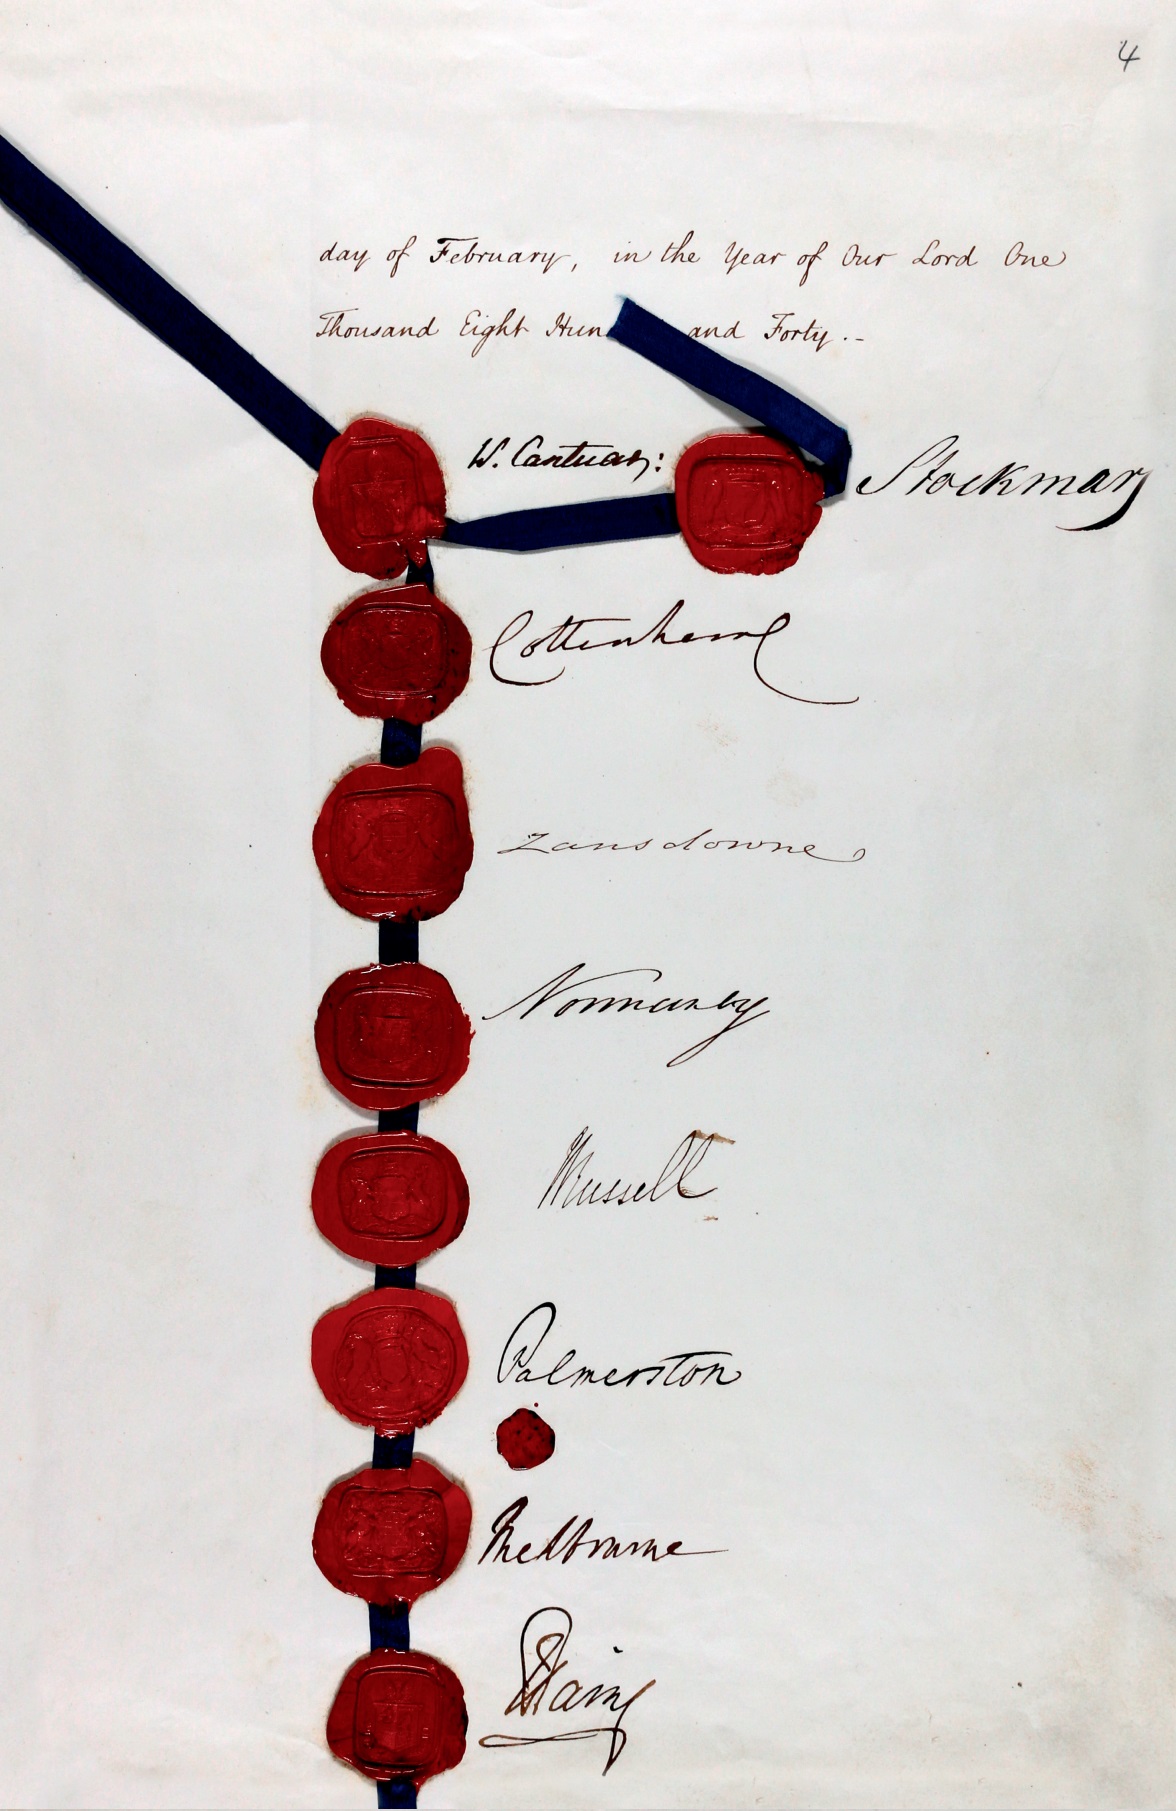 4
day of February, in the Year of Our Lord One
Thousand Eight Hun and Forty.-
W. Cantuar:
Stockmar
Cottenham
Lansdowne
Normanby
JRussell
Palmerston
Melbourne